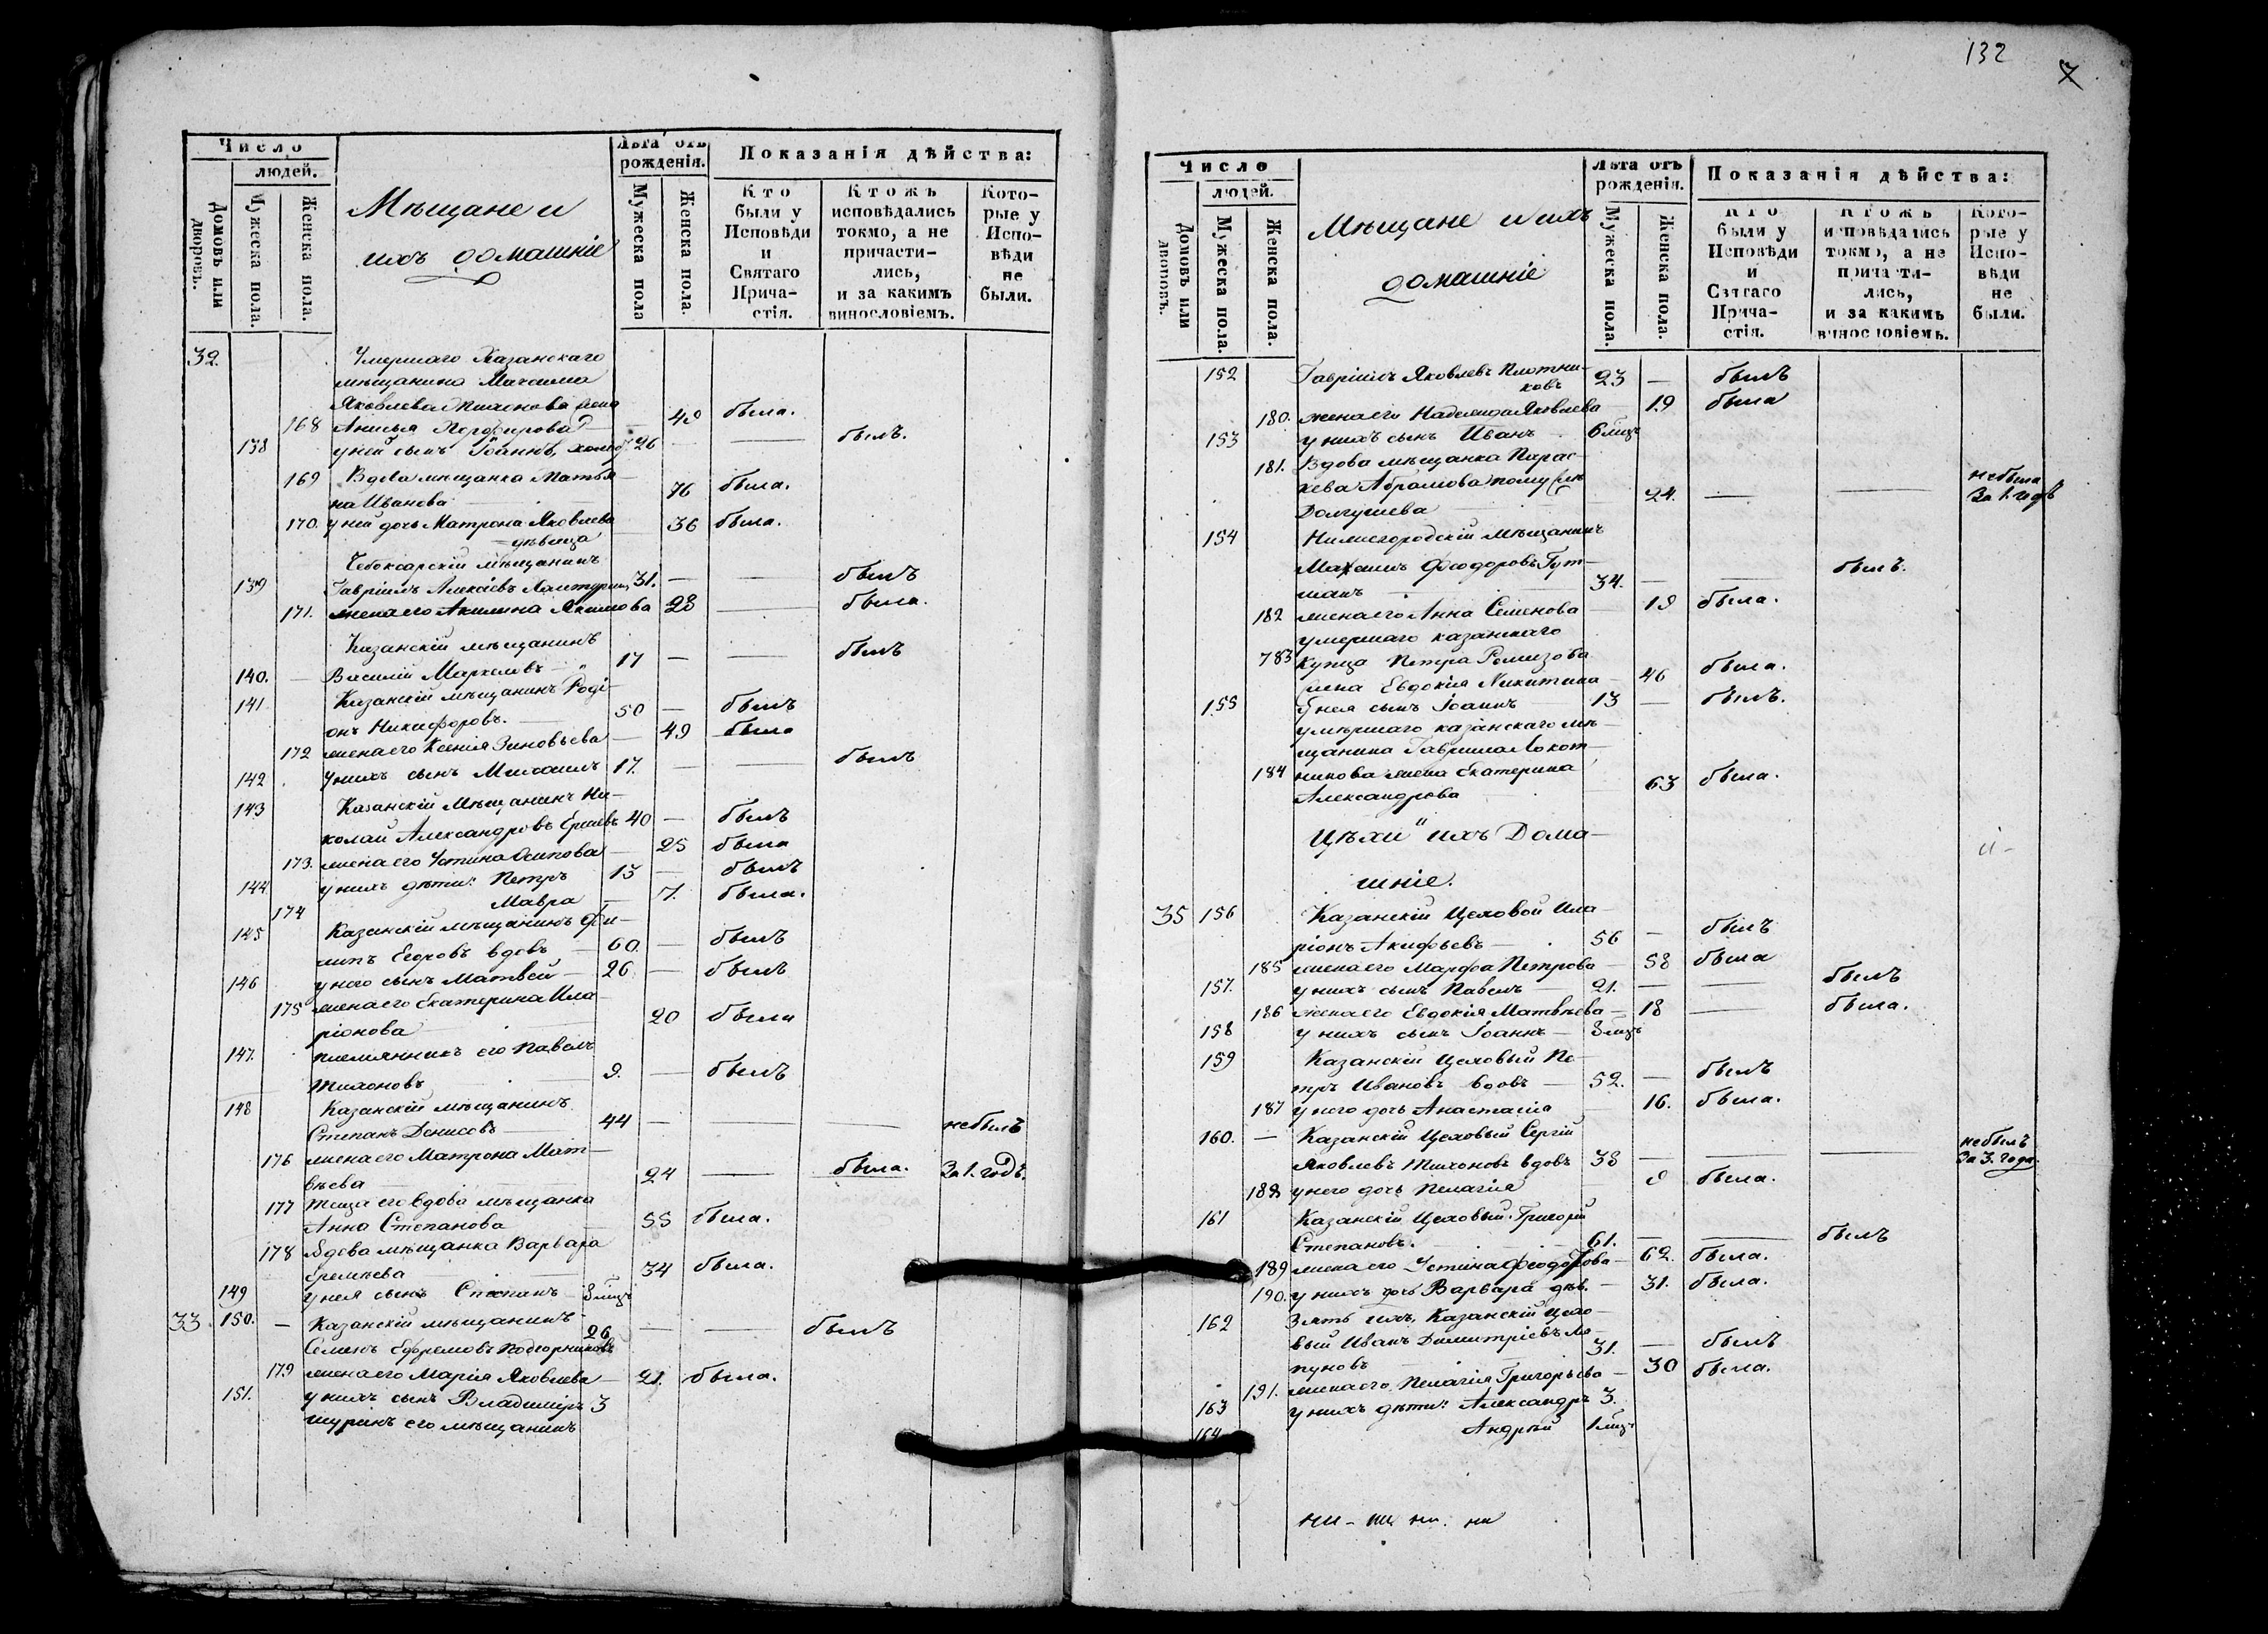 Число
людей.
Домовъ или дворовъ.
Мужеска пола.
Женска пола.
Мѣщане и
ихъ домашніе
Лѣта отъ
рожденія.
Мужеска пола
Женска пола.
Показанія дѣйства:
Кто
были у
Исповѣди
и
Святаго
Прича-
стія.
Ктожъ
исповѣдались
токмо, а не
причасти-
лись,
и за какимъ
винословіемъ.
Кото-
рые у
Испо-
вѣди
не
были.
32. Умершаго Казанскаго
мѣщанина Максима
Яковлева жена
168 Анисья Порфирова 42 была.
138 у ней сынъ Іоаннъ, холос 26 — — былъ.
169 Вдова мѣщанка Татья-
на Иванова 76 была.
170. у ней дочь Матрона Яковлева 36 была.
дѣвица
Чебоксарскій мѣщанинъ
139 Гавріилъ Алексѣевъ 31. — — былъ
171. жена его Акилина Якимова 28 — была.
Казанскій мѣщанинъ
140. — Василій Маркеловъ 17 — — былъ
141 Казанскій мѣщанинъ Роді-
онъ Никифоровъ. 50 — былъ
172 жена его Ксенія Зиновьева — 49 была
142 У нихъ сынъ Михаилъ 17. — — былъ
143 Казанскій мѣщанинъ Ни-
колай Александровъ Ершевъ 40 — былъ
173. жена его Устина Осипова — 25 была
144 у нихъ дѣти: Петръ 15 — былъ
174 Мавра — 7. была.
145 Казанскій мѣщанинъ Фи-
липъ Егоровъ вдовъ — 60. — былъ
146 у него сынъ Матвей — 26. — былъ
175 жена его Екатерина Ила-
ріонова 20 была
147. племянникъ его Павелъ
Тихоновъ — 9. — былъ
148 Казанскій мѣщанинъ
Степанъ Денисовъ — 44 — — — небылъ
176 жена его Матрона Мат-
вѣева — 24 — была. За 1. годъ.
177 Теща его вдова мѣщанка
Анна Степанова — 55 была.
178 Вдова мѣщанка Варвара
Еремѣева — 34 была.
149 у нея сынъ Степанъ — 8 мцъ
33. 150. — Казанскій мѣщанинъ
Семенъ Ефремовъ Подгорниковъ 26 — — былъ
179 жена его Марія Яковлева — 21. была.
151. у нихъ сынъ Владиміръ 3
шуринъ его мѣщанинъ
132
7
Число
людей.
Домовъ или дворовъ.
Мужеска пола.
Женска пола.
Мѣщане и ихъ
домашніе
Лѣта отъ
рожденія.
Мужеска пола.
Женска пола.
Показанія дѣйства:
Кто
были у
Исповѣди
и
Святаго
Прича-
стія.
Ктожъ
исповѣдались
токмо, а не
причасти-
лись,
и за какимъ
винословіемъ.
Кото-
рые у
Испо-
вѣди
не
были.
152 Гавріилъ Яковлевъ Плотни-
ковъ 23 — былъ
180. жена его Надежда Яковлева 19 была
153 у нихъ сынъ Иванъ — 6 мцъ
181. Вдова мѣщанка Парас-
кева Абрамова по мужѣ
Долгушева — 24. — — небыла За 1. годъ
154 Нижегородскій мѣщанинъ
Максимъ Феодоровъ Гут-
манъ — 34. — — былъ.
182 жена его Анна Семенова — 19 была.
умершаго казанскаго
783 Купца Петра Ремизова
жена Евдокія Никитина — 46 была.
155 У нея сынъ Іоаннъ — 13 — былъ.
умершаго казанскаго мѣ-
щанина Гавріила Локот-
184 никова жена Екатерина
Александрова — 63 была.
Цѣхи и ихъ Дома-
шніе.
35 156 Казанскій Цеховой Ила-
ріонъ Акифьевъ — 56 — былъ
185 жена его Марфа Петрова — 58 была
157. у нихъ сынъ Павелъ — 21. — — былъ
186 жена его Евдокія Матвѣева — 18 — была.
158 у нихъ сынъ Іоаннъ — 8 мцъ
159 Казанскій Цеховый Пе-
тръ Ивановъ вдовъ — 52. — былъ
187 у него дочь Анастасія 16. была.
160. — Казанскій Цеховый Сергій
Яковлевъ Тихоновъ вдовъ 38 — — — небылъ За 3. года.
188 у него дочь Пелагія 9 была.
161 Казанскій Цеховый Григорій
Степановъ. 61. — — былъ
189 жена его Устина Феодорова — 62. была.
190. у нихъ дочь Варвара дѣв. — 31. была.
162 Зять ихъ, Казанскій Цехо-
вый Иванъ Димитріевъ Ло-
пуновъ — 31. — былъ
191. жена его Пелагія Григорьева — 30 была.
163 у нихъ дѣти: Александръ 3.
164 Андрей 1 мцъ